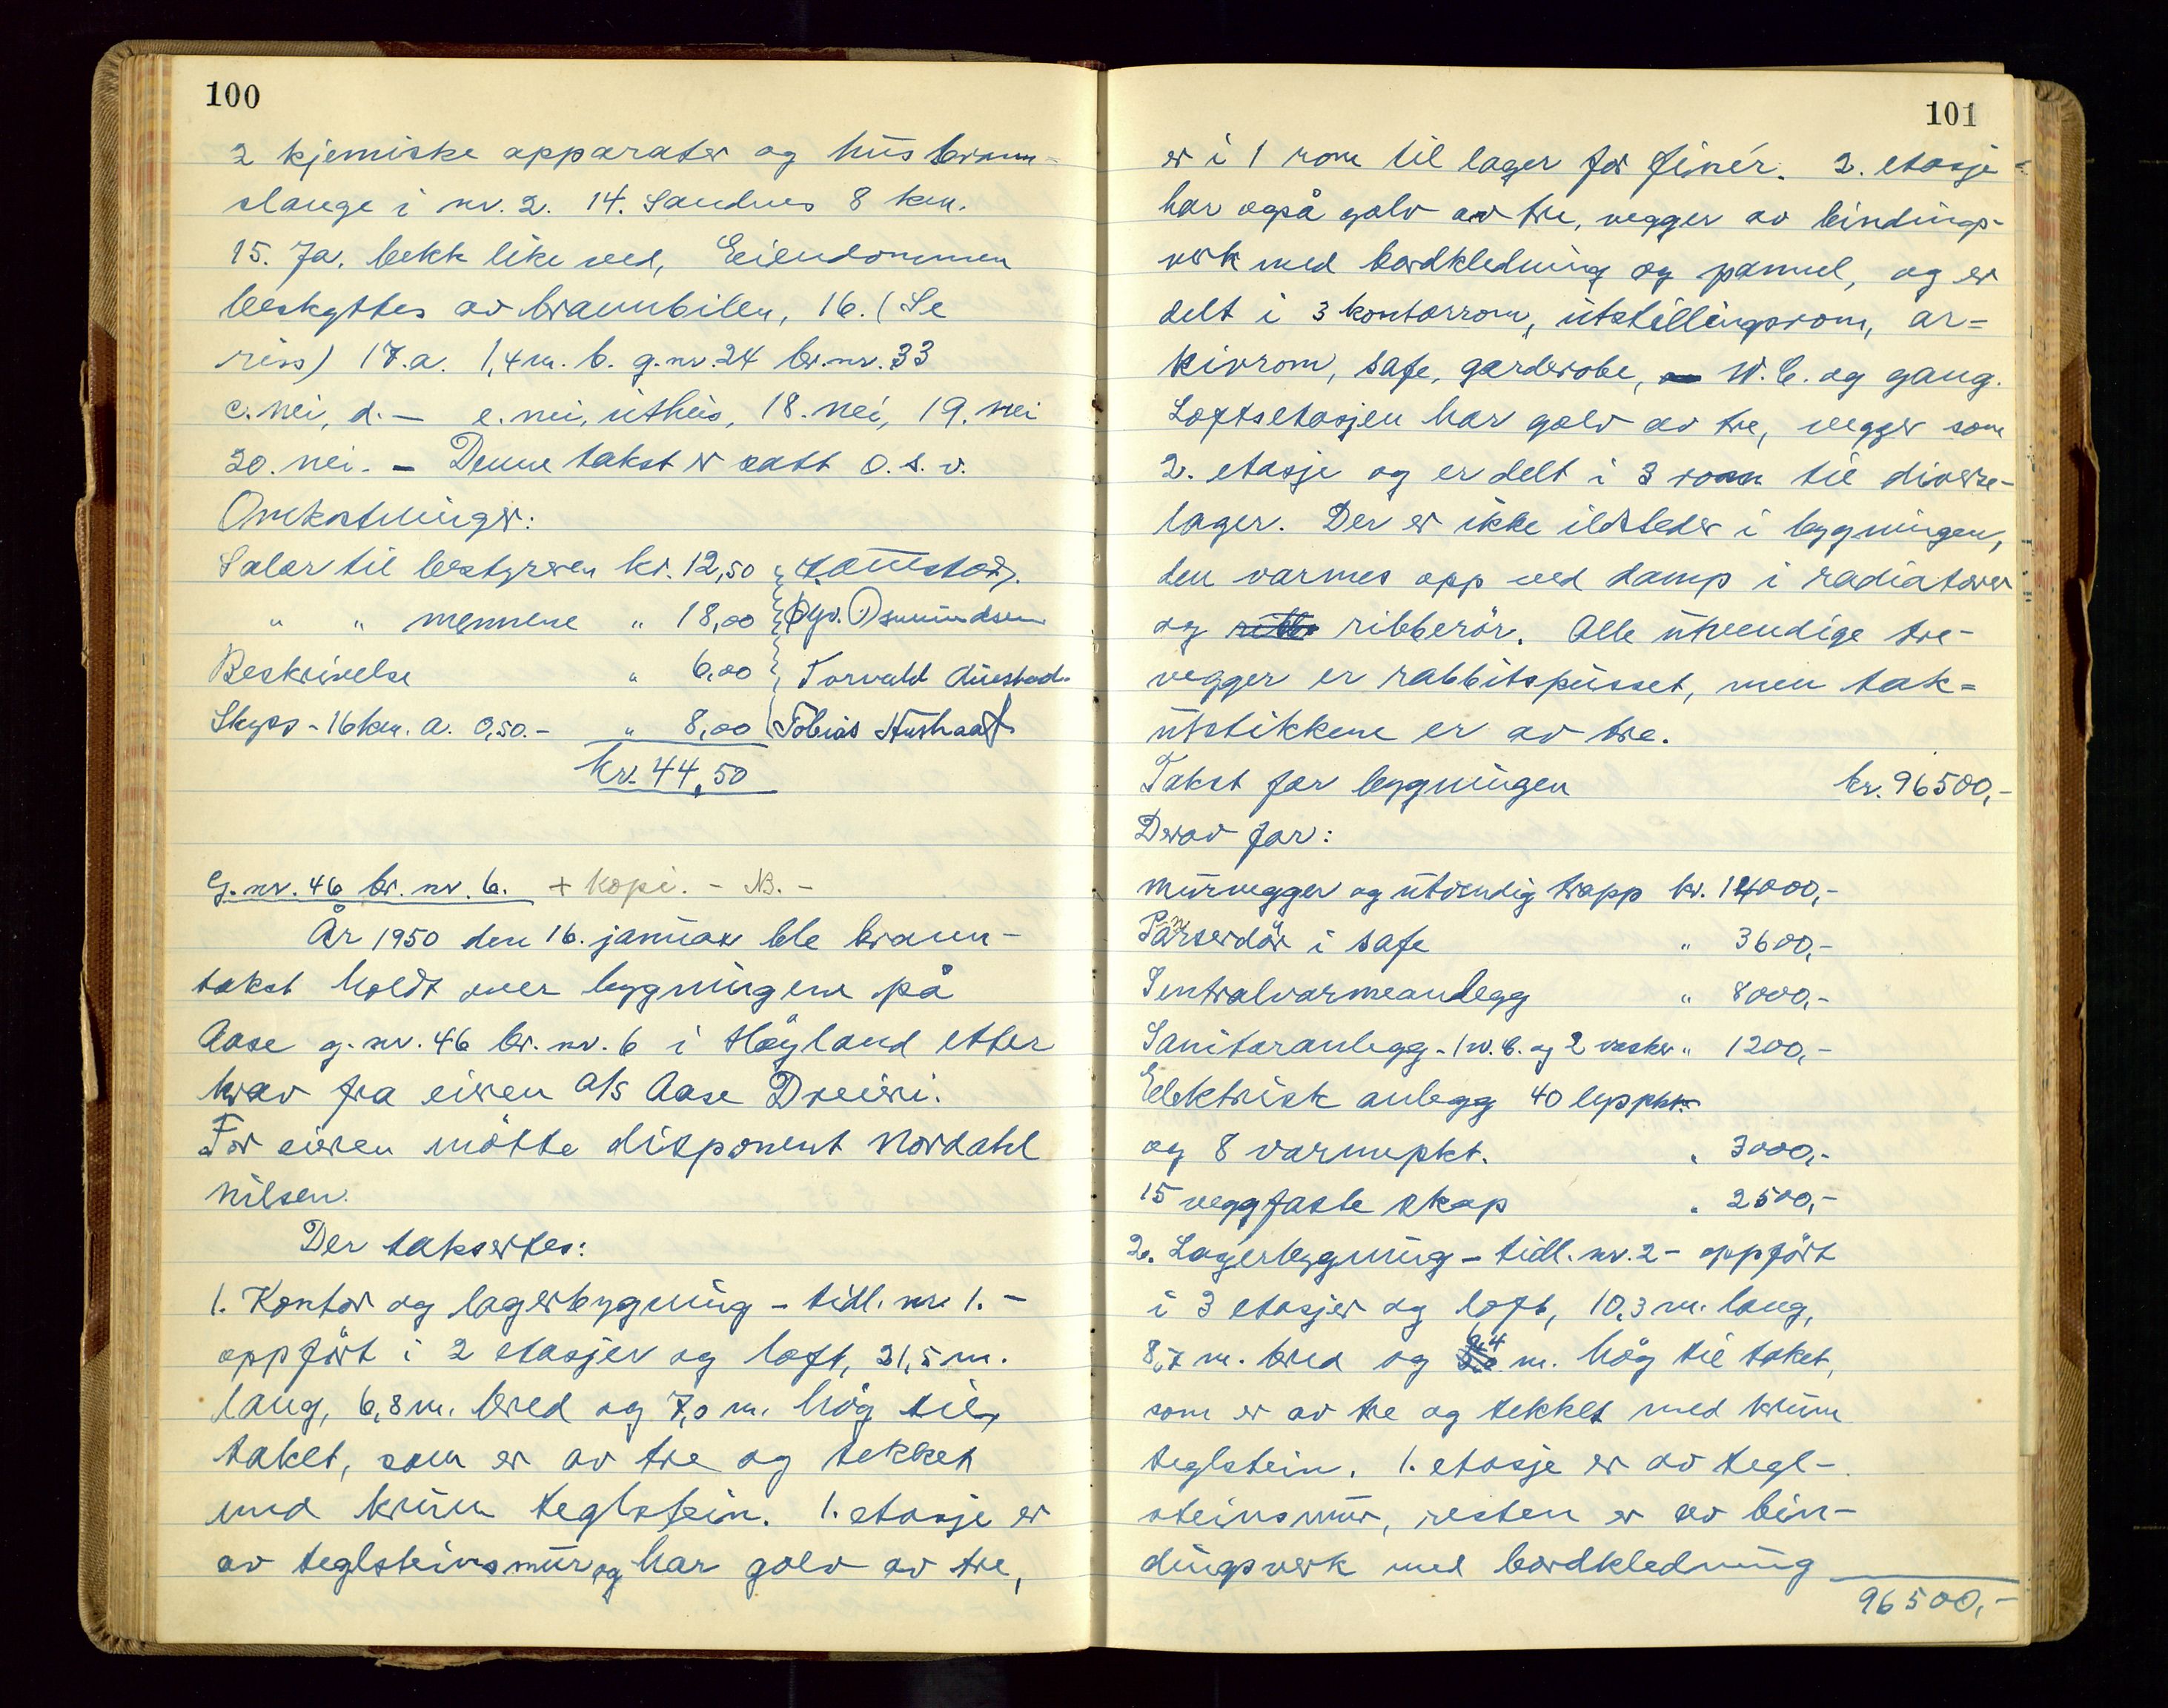 100
2 kjemiske apparater og husbrann-
slange i nr. 2. 14. Sandnes 8 km.
15. Ja, bekk like ved, Eiendommen
beskyttes av brannbilen, 16. (Se
riss) 17. a. 1,4 m. b. g.nr. 24 br.nr. 33
c. nei, d. — e. nei, uthus, 18. nei, 19. nei
20. nei. — Denne takst er satt o. s. v.
Omkostninger:
Salær til bestyreren kr. 12,50
" " mennene " 18,00
Beskrivelse " 6,00 Torvald Auestad.
Skyss - 16 km. a. 0,50.- " 8,00 Tobias
kr. 44,50
G. nr. 46 br. nr. 6. + kopi. - NB. -
År 1950 den 16. januar ble brann-
takst holdt over bygningene på
Aase g. nr. 46 br. nr. 6 i Høyland etter
krav fra eieren A/S Aase Dreieri.
For eieren møtte disponent Nordahl
Nilsen.
Der taksertes:
1. Kontor og lagerbygning - tidl. nr. 1. -
oppført i 2 etasjer og loft, 21,5 m.
lang, 6,8 m. bred og 7,0 m. høg til
taket, som er av tre og tekket
med krum teglstein. 1. etasje er
av teglsteinsmur og har golv av tre,
101
er i 1 rom til lager for finér. 2. etasje
har også golv av tre, vegger av bindings-
verk med bordkledning og pannel, og er
delt i 3 kontorrom, utstillingsrom, ar=
kivrom, safe, garderobe, W. C. og gang.
Loftsetasjen har golv av tre, vegger som
2. etasje og er delt i 3 rom til diverse-
lager. Der er ikke ildsteder i bygningen,
den varmes opp ved damp i radiatorer
og ribberør. Alle utvendige tre-
vegger er rabbitspusset, men tak=
utstikkene er av tre.
Takst for bygningen kr. 96500,-
Derav for:
murvegger og utvendig trapp kr. 14000,-
Panserdør i safe " 3600,-
Sentralvarmeanlegg " 8000,-
Sanitæranlegg - 1 w. C. og 2 vasker " 1200,-
Elektrisk anlegg 40 lyspkt.
og 8 varmepkt. " 3000,-
15 veggfaste skap " 2500,-
2. Lagerbygning - tidl. nr. 2 - oppført
i 3 etasjer og loft, 10,3 m. lang,
8,7 m. bred og m. høg til taket,
som er av tre og tekket med krum
teglstein. 1. etasje er av tegl-
steinsmur, resten er av bin-
dingsverk med bordkledning
96500,-